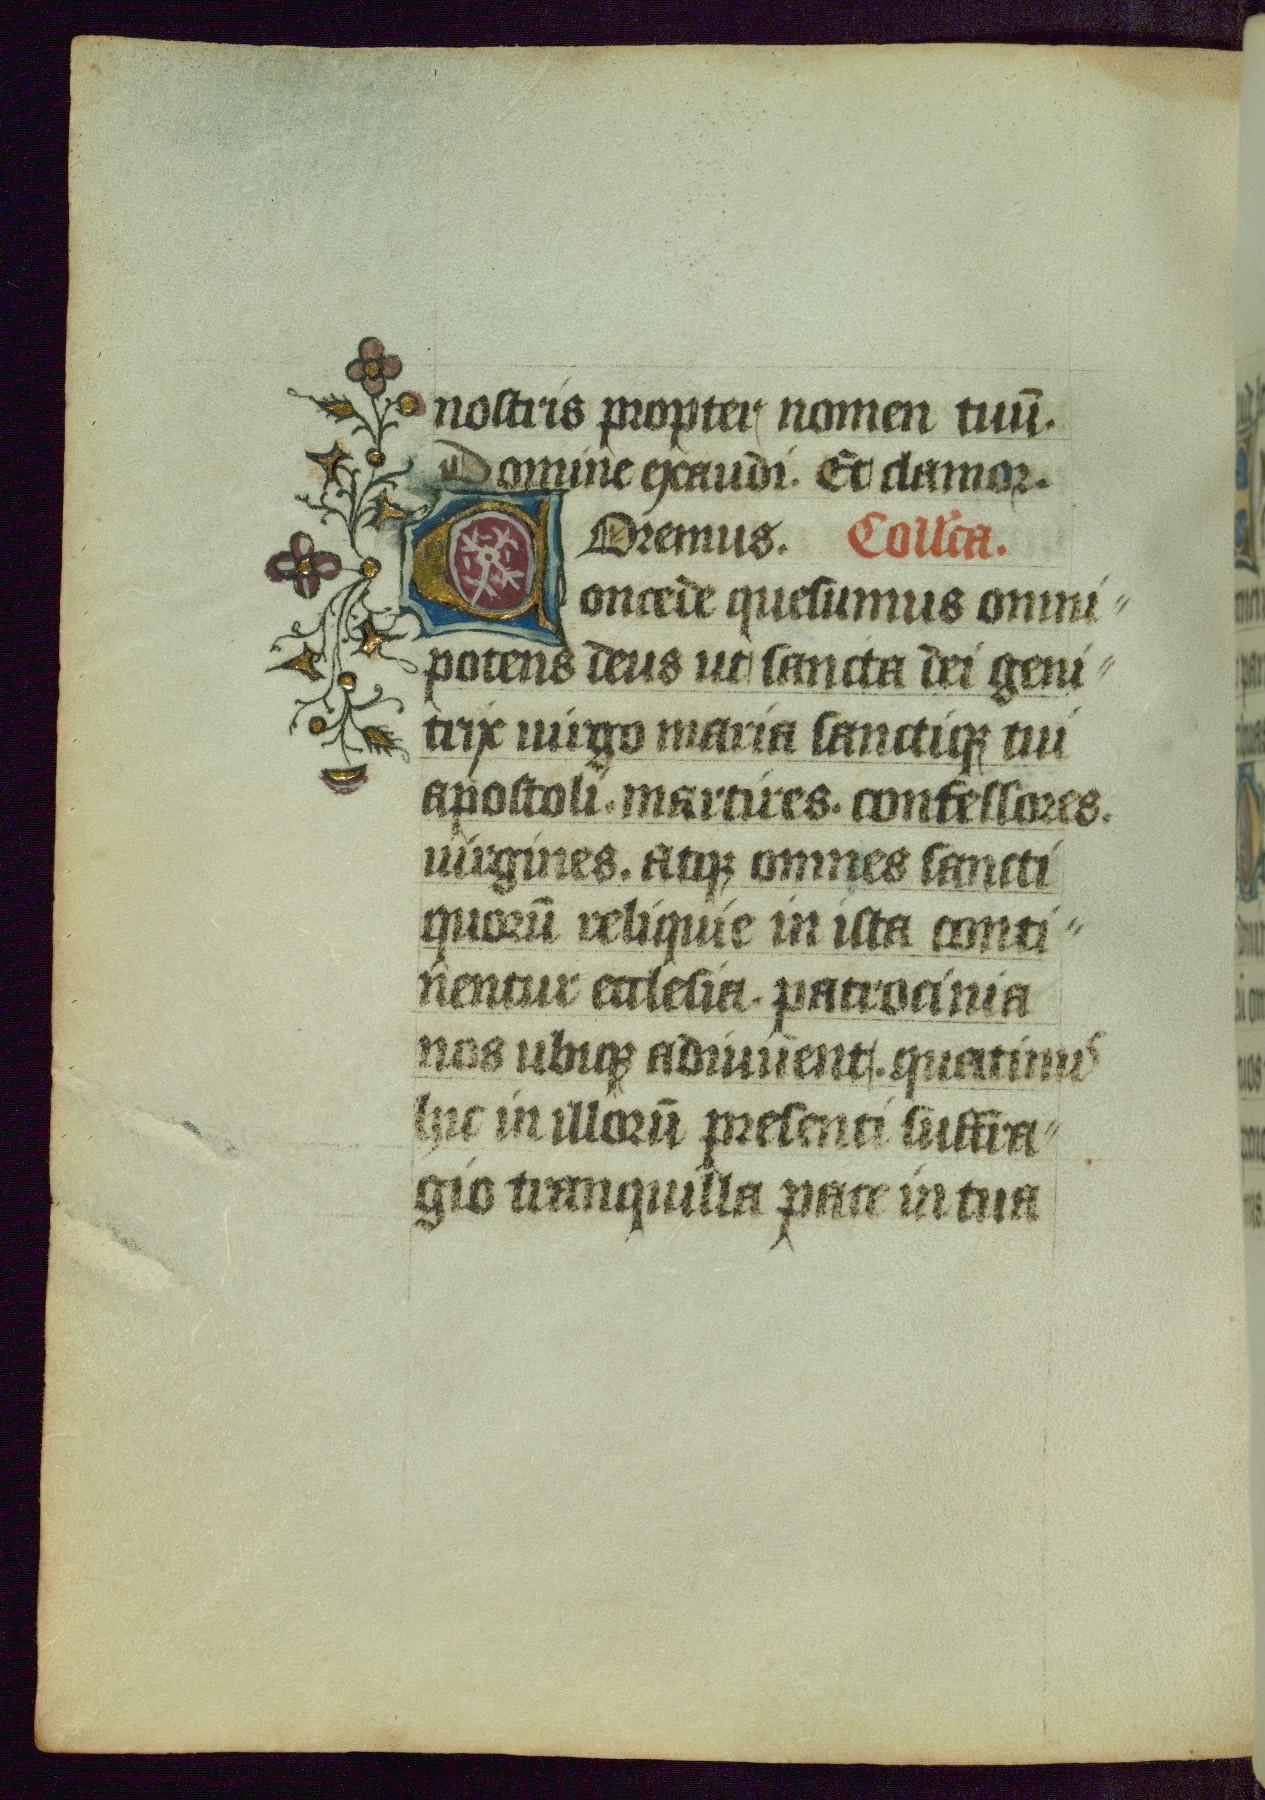 nostris propter nomen tuū.
Domine exaudi. Et clamor.
Oremus. Coll'ca.
Concede quesumus omni〃
potens deus ut sancta dei geni〃
trix uirgo maria sanctiqꝫ tui
apostoli. martires. confessores.
uirgines. atqꝫ omnes sancti
quorū reliquie in ista conti〃
nentur ecclesia. patrocinia
nos ubiqꝫ adiuuent. quatinus
hic in illorū presenti suffra〃
gio tranquilla pace in tua